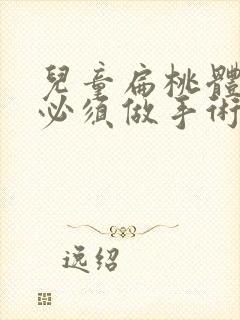 兒童扁桃體
必須做手術
逸绍